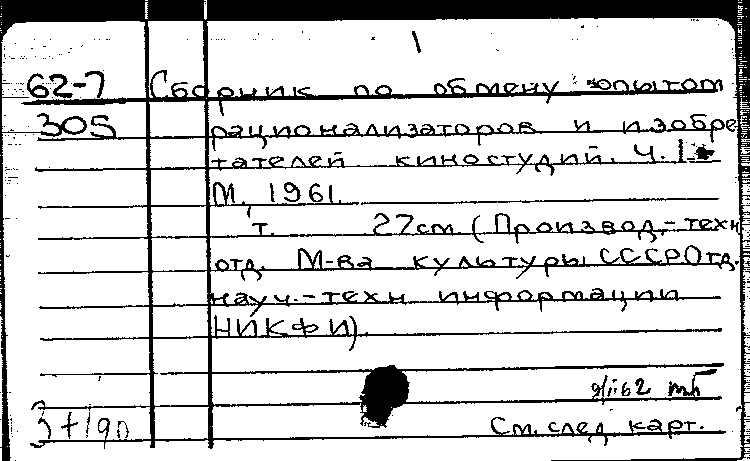 62-7 Сборник по обмену опытом
305 рационализаторов и изобре
тателей киностудий. Ч. 1
М., 1961.
т. 27см (Производ.-техн
отд. М-ва культуры СССР Отд.
науч.-техн информации
НИКФИ).
См. след. карт.